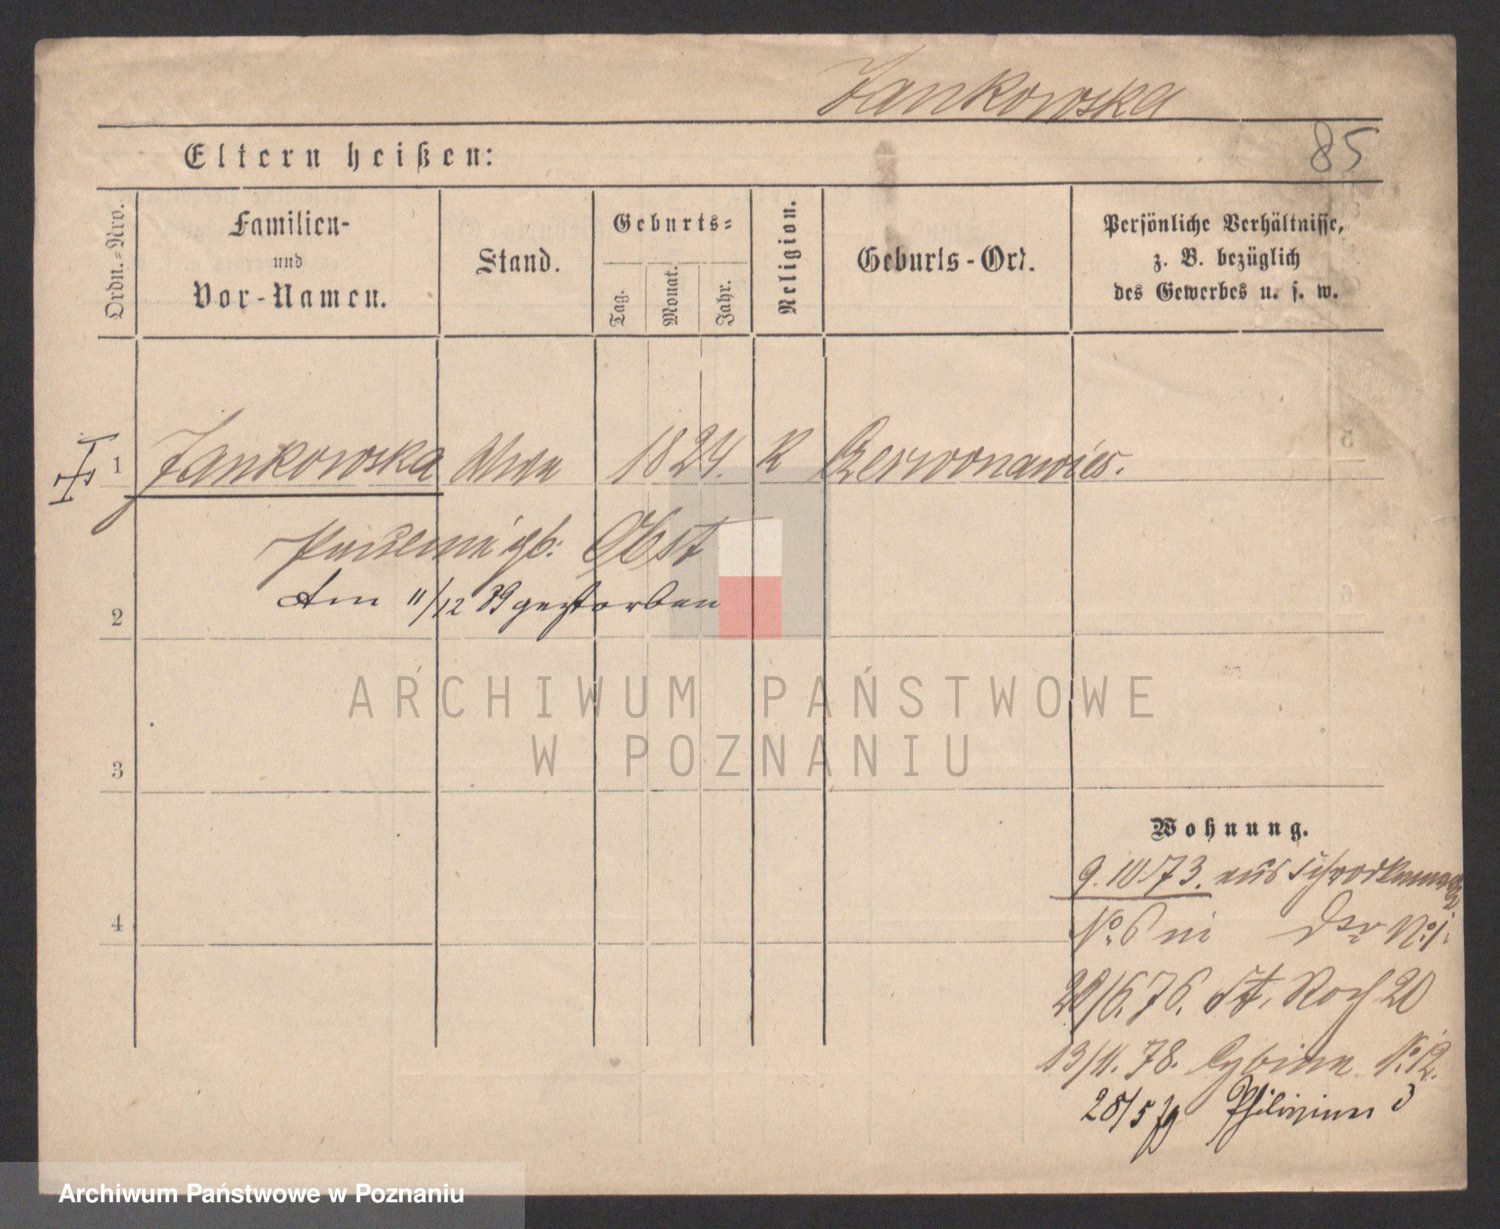 Jankowska
85
Eltern heißen:
Ordn.-Nro.
Familien-
und
Vor-Namen.
Stand.
Geburts-
Tag.
Monat.
Jahr.
Religion.
Geburts-Ort.
Persönliche Verhältnisse,
z. B. bezüglich
des Gewerbes u. s. w.
1 Jankowska Wwe 1824. K
geb: Obst
Am 11/12 89 gestorben
2
ARCHIWUM PAŃSTWOWE
W POZNANIU
3
Wohnung.
9.10.73. aus
4
No. 6 in No. 1.
20/6.76. St. Roch 20
13/11.78. Cybina No. 12.
28/5 79 3
Archiwum Państwowe w Poznaniu